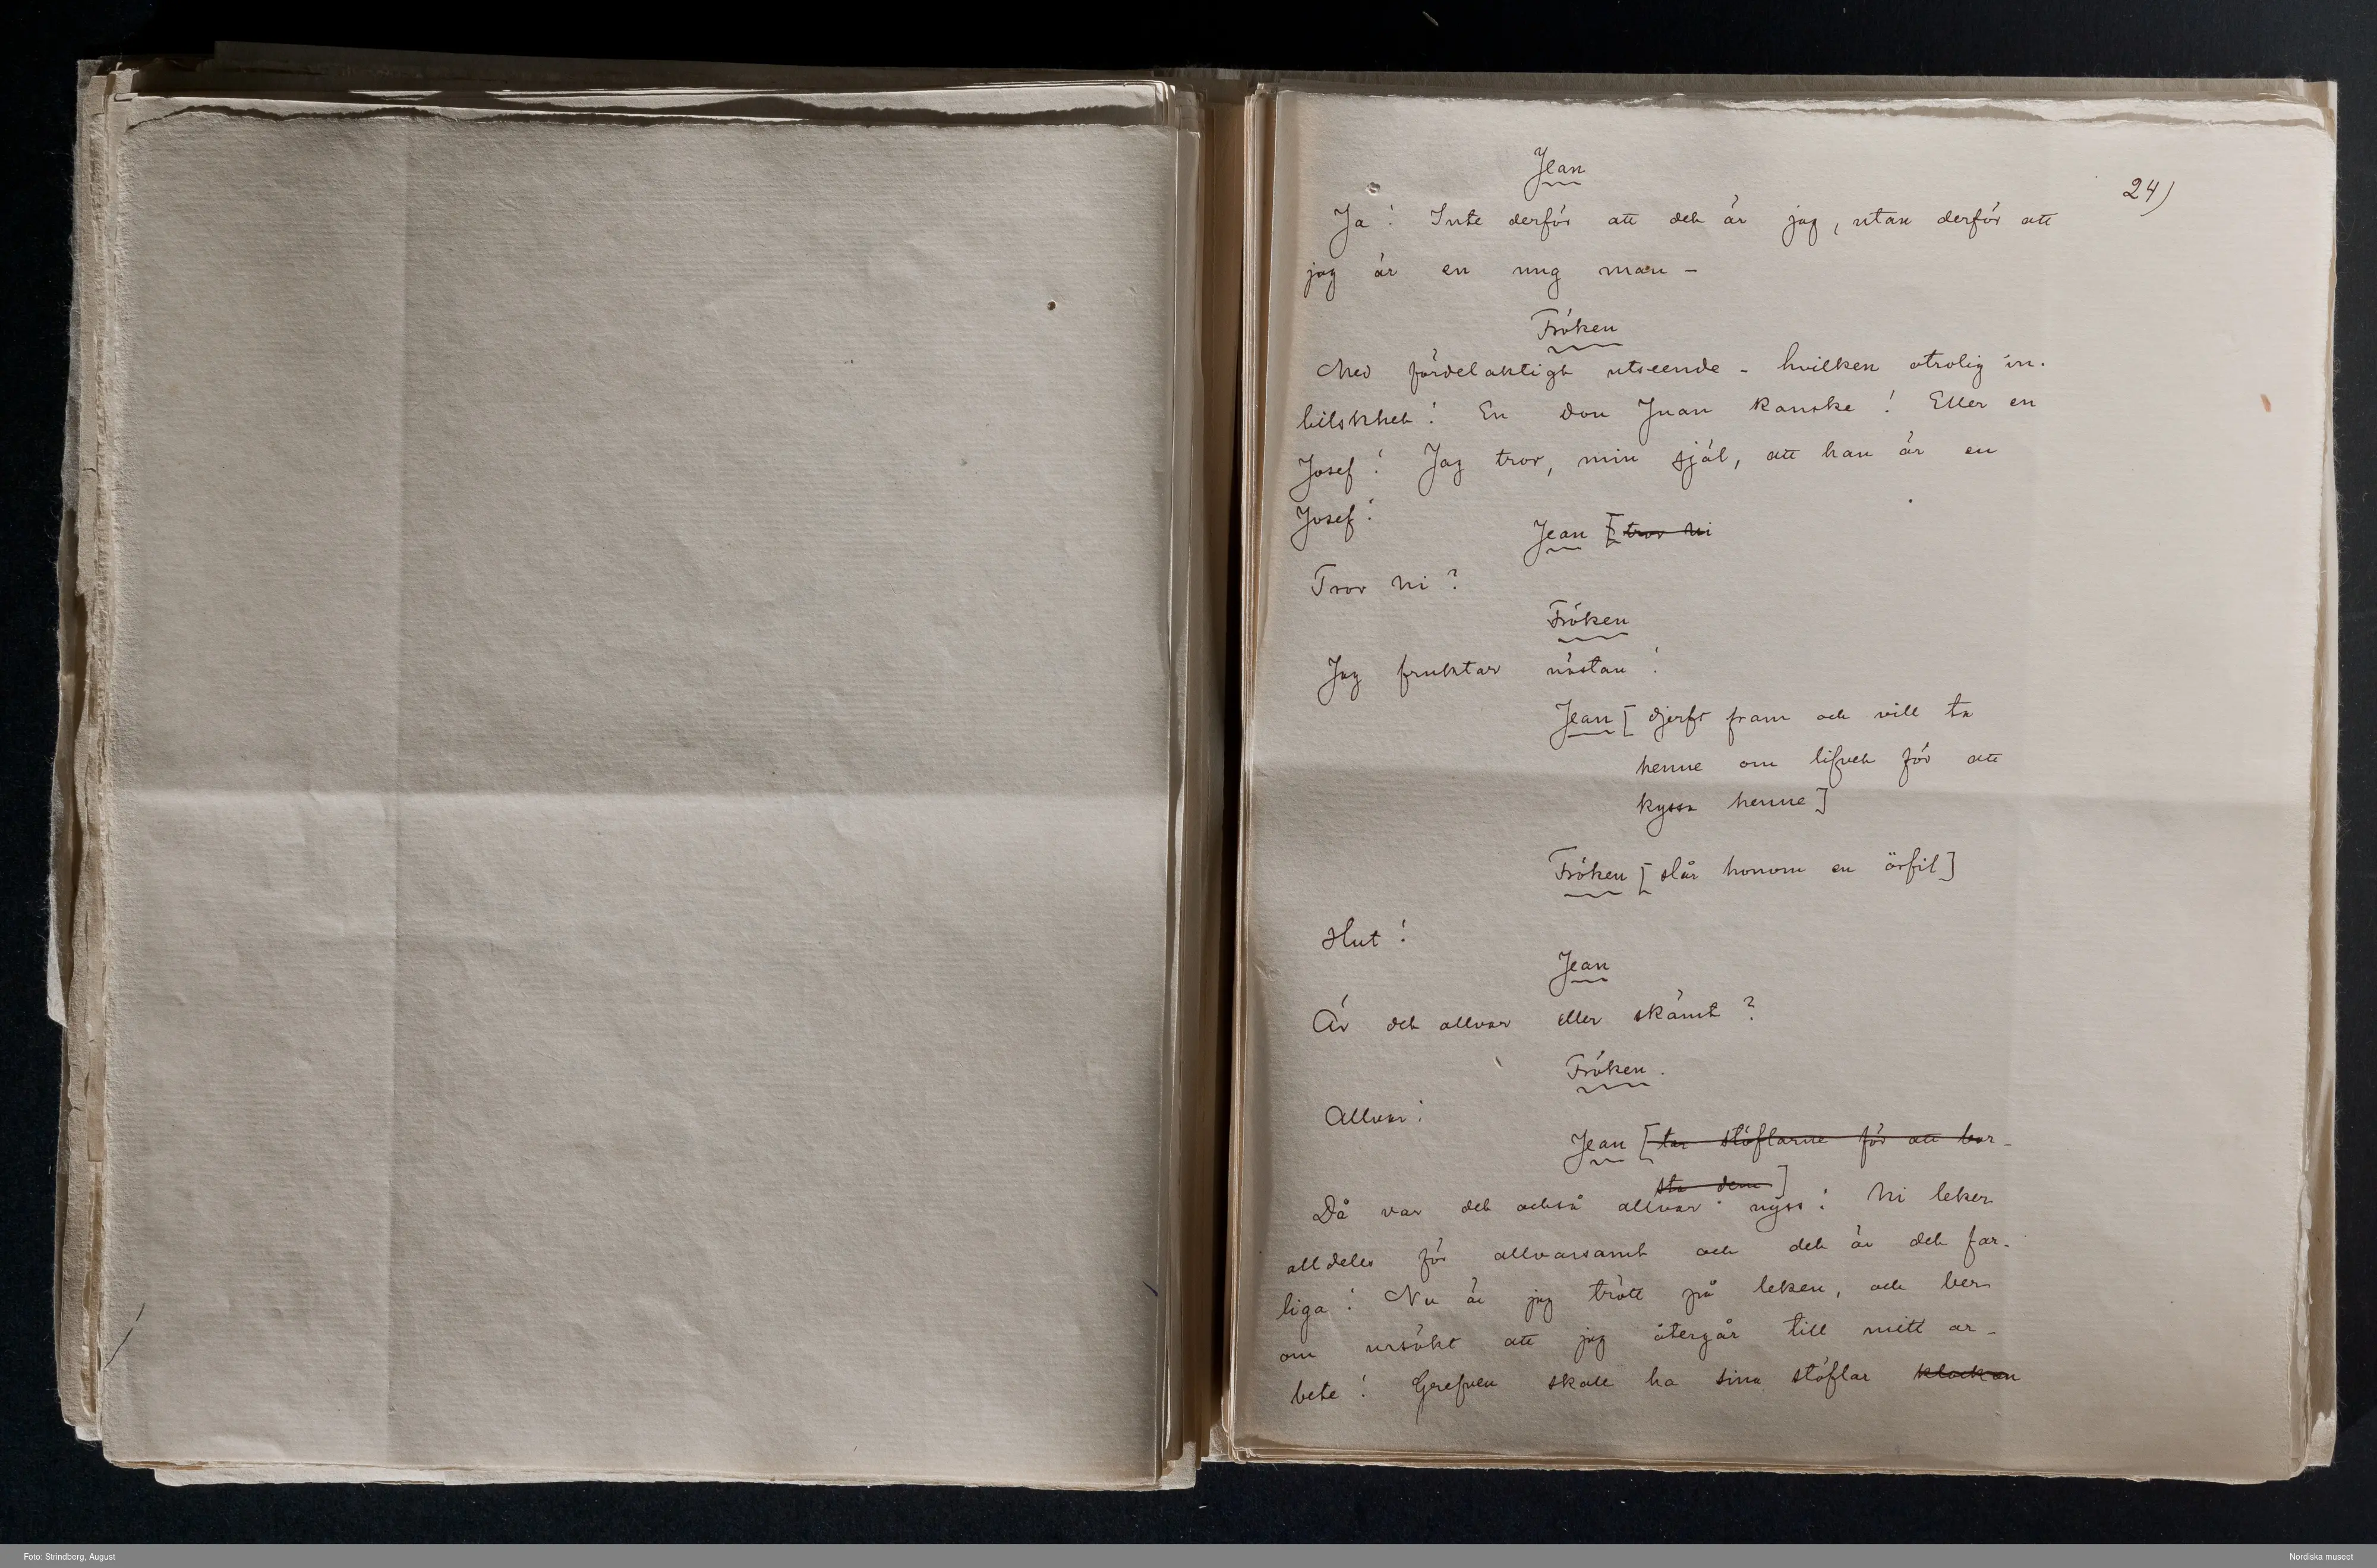 24)
Jean
Ja! Inte derför att det är jag, utan derför att
jag är en ung man –
Fröken
Med fördelaktigt utseende – hvilken otrolig in-
bilskhet! En Don Juan kanske! Eller en
Josef! Jag tror, min själ, att han är en
Josef!
Jean [tror ni
Tror ni?
Fröken
Jag fruktar nästan!
Jean [djerft fram och vill ta
henne om lifvet för att
kyssa henne]
Fröken [slår honom en örfil]
Hut!
Jean
Är det allvar eller skämt?
Fröken.
Allvar!
Jean [tar stöflarne för att bor-
sta dem]
Då var det också allvar nyss! Ni leker
alldeles för allvarsamt och det är det far-
liga! Nu är jag trött på leken, och ber
om ursäkt att jag återgår till mitt ar-
bete! Grefven skall ha sina stöflar klockan
Foto: Strindberg, August
Nordiska museet